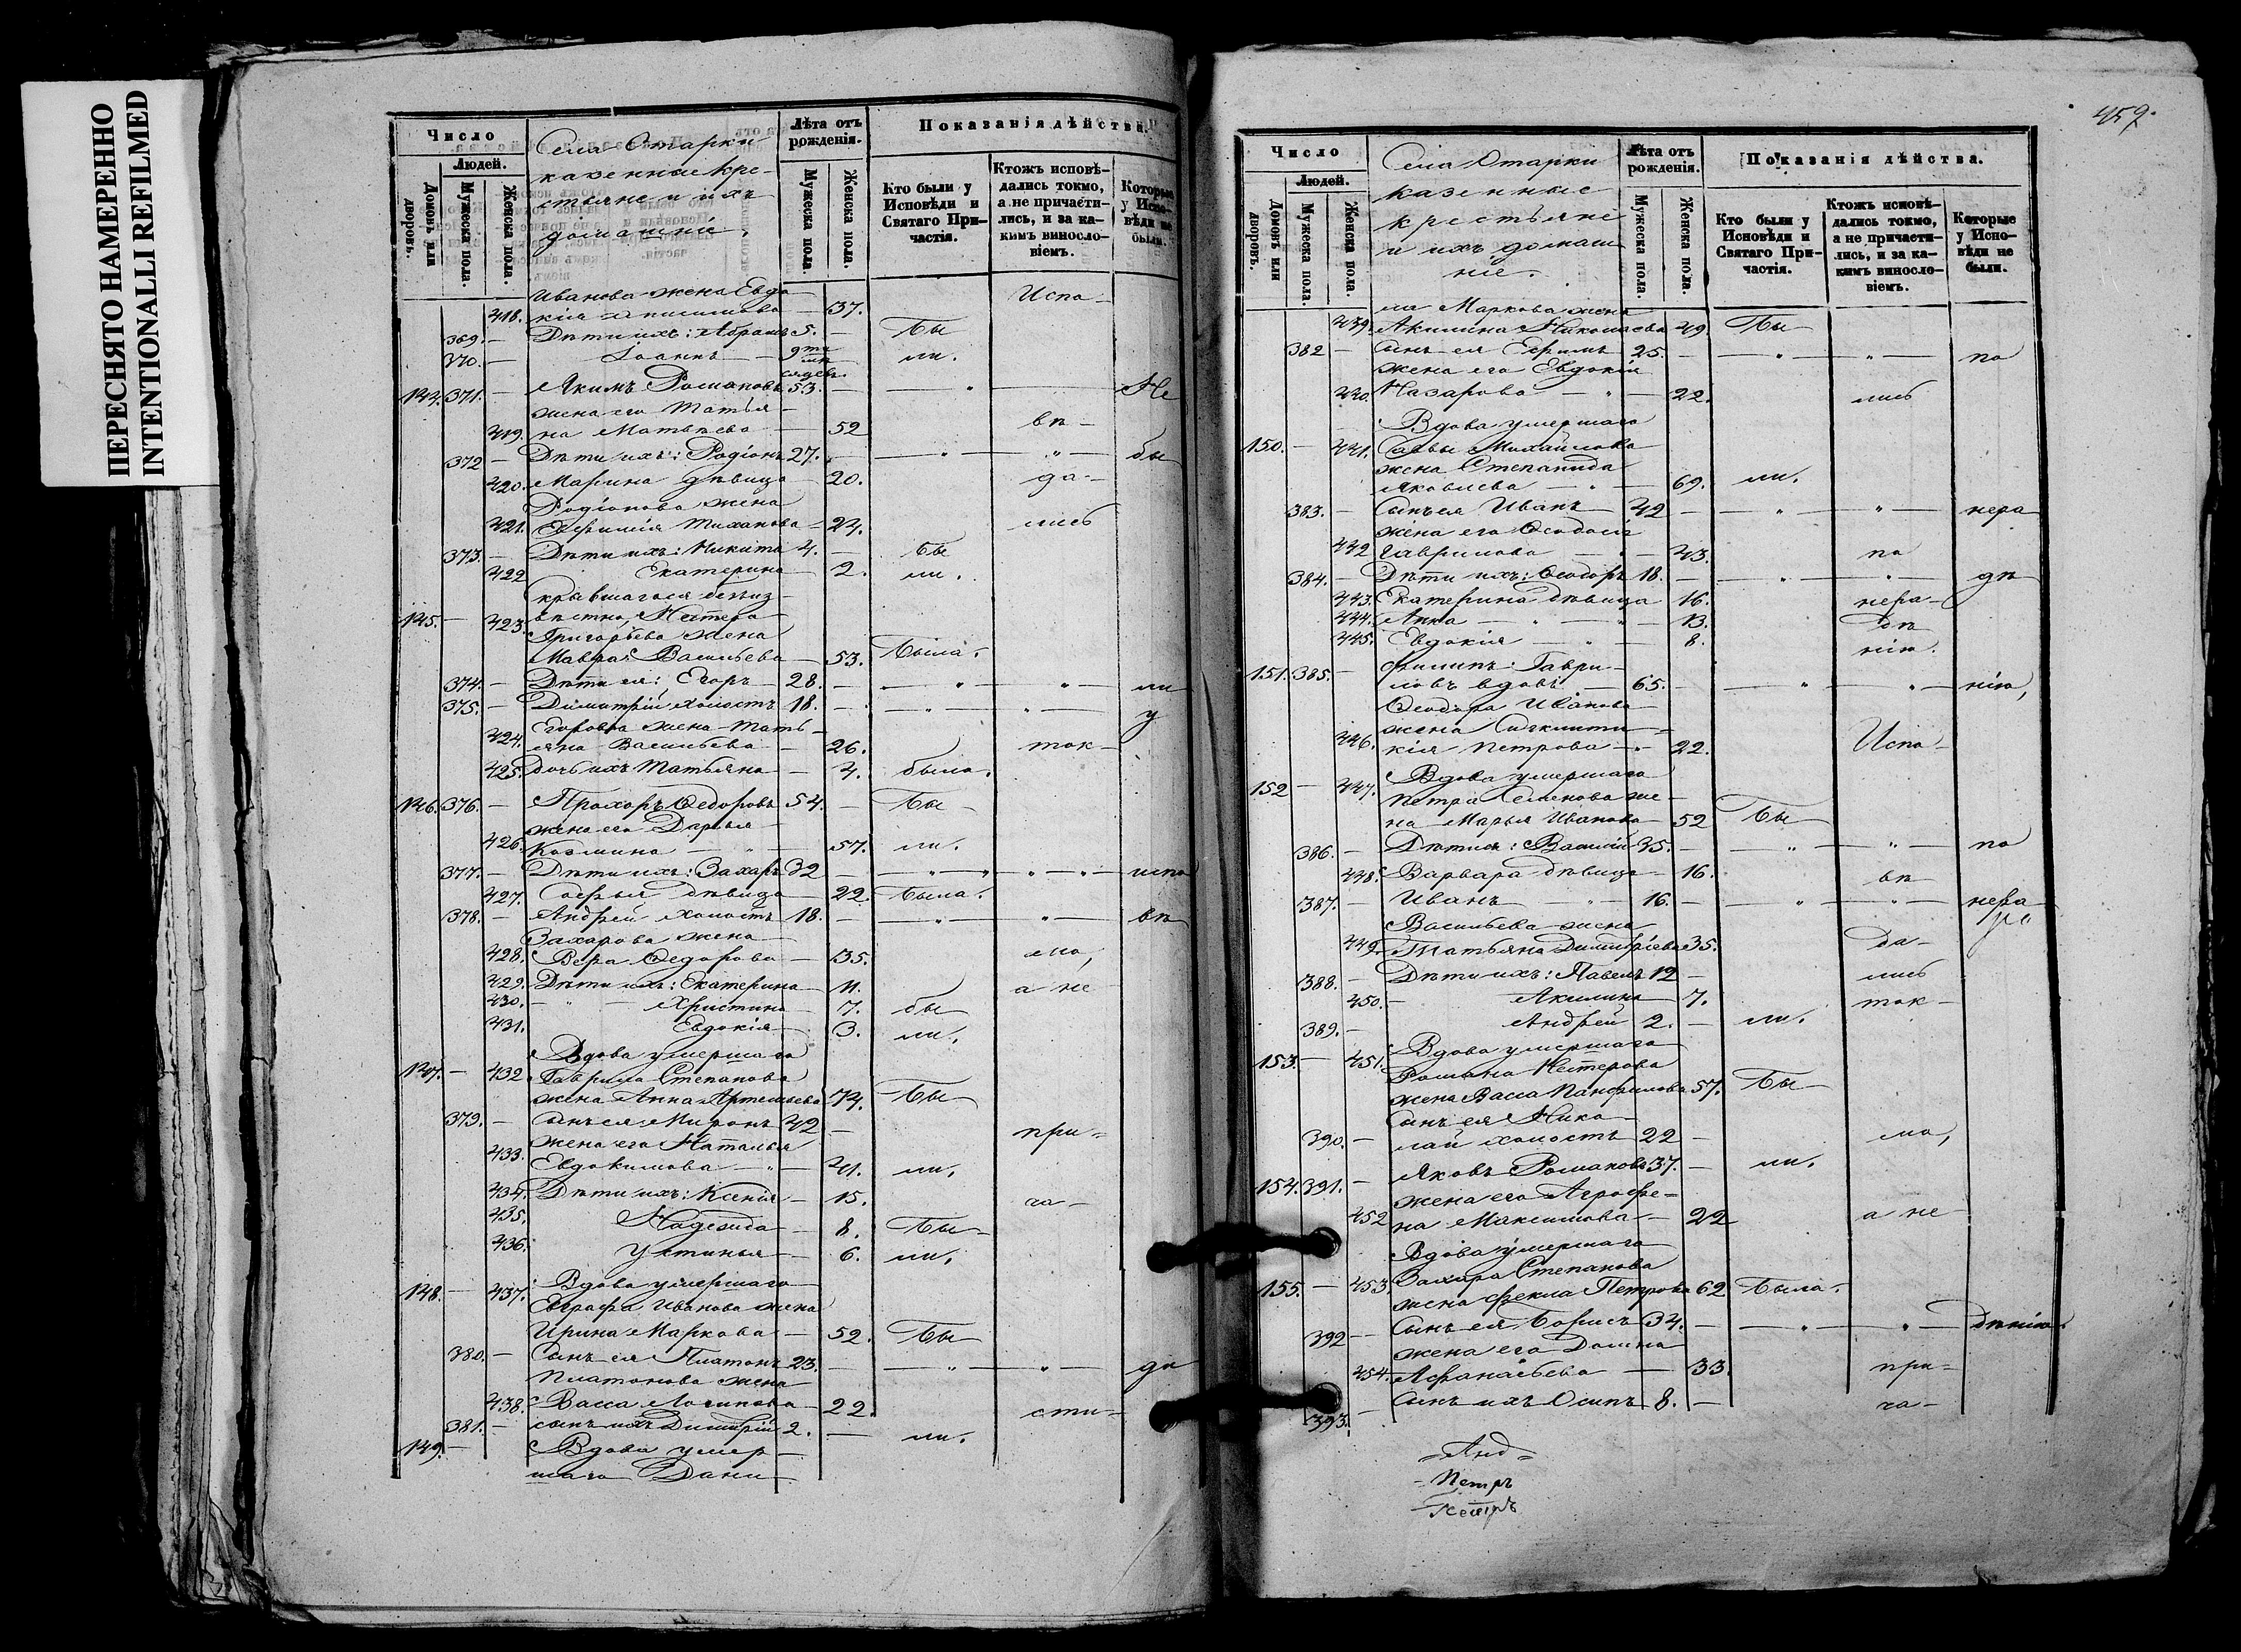 ПЕРЕСНЯТО НАМЕРЕННО
INTENTIONALLI REFILMED
Число
Людей.
Домовъ или дворовъ.
Мужеска пола.
Женска пола.
Села Отарки
казенные кре-
стьяне и ихъ
домашніе.
Лѣта отъ рожденія.
Мужеска пола.
Женска пола.
Показанія дѣйства.
Кто были у Исповѣди и Святаго Причастія.
Ктожъ исповѣдались токмо, а не причастились, и за какимъ винословіемъ.
Которые у Исповѣди не были.
Иванова жена Евдо-
418. кія — 37. Испо-
369. — Дѣти ихъ: Абрамъ 5. — Бы
370. — Іоаннъ — ли.
144. 371. — Якимъ Романовъ 53. — Не
жена его Татья-
419. на Матвѣева — 52 вѣ-
372 — Дѣти ихъ: Родіонъ 27. — бы
420. Марина дѣвица — 20. да-
Родіонова жена
421. Евфимія — 24. лись
373. — Дѣти ихъ: Никита 4. — Бы
422 Екатерина — 2. ли.
145. — 423. вѣстно, Нестера
Григорьева жена
Мавра Васильева — 53. Была.
374. — Дѣти ея: Егоръ 28. — ли
375. — Димитрій холостъ 18. — у
Егорова жена Тать-
424. яна Васильева — 26. ток-
425. дочь ихъ Татьяна — 4. была.
146. 376. — Прохоръ Ѳедоровъ 54. — Бы-
жена его Дарья
426. Козмина — 57. ли.
377. — Дѣти ихъ: Захаръ 32 — испо
427. Софья дѣвица 22. Была.
378. — Андрей холостъ 18. — вѣ
Захарова жена
428. Вера Ѳедорова — 35. мо,
429. Дѣти ихъ: Екатерина — 11. а не
430. Христина 7. бы
431. Евдокія 3. ли.
Вдова умершаго
147. — 432 Гаврила Степанова
жена Анна Артемьева 74. Бы-
379. — Сынъ ея Миронъ 42 —
жена его Наталья при-
433. Евдокимова — 41. ли.
434. Дѣти ихъ: Ксенія — 15. ча-
435. Надежда — 8. Бы-
436. Устинья — 6. ли.
148. — 437. Вдова умершаго
Евграфа Иванова жена
Ирина Маркова — 52. Бы
380. — Сынъ ея Платонъ 23. — ди
Платонова жена
438. Васса Логинова 22. сти-
381. — сынъ ихъ Димитрій 2. — ли.
149. — Вдова умер-
шаго Дани-
459.
Число
Людей.
Домовъ или дворовъ.
Мужеска пола.
Женска пола.
Села Отарки
казенные
крестьяне
и ихъ домаш-
ніе.
Лѣта отъ рожденія.
Мужеска пола.
Женска пола.
Показанія дѣйства.
Кто были у Исповѣди и Святаго Причастія.
Ктожъ исповѣдались токмо, а не причастились, и за какимъ винословіемъ.
Которые у Исповѣди не были.
ла Маркова жена
439. Акилина Николаева 49 Бы-
382 — Сынъ ея Ефимъ 25. — по
жена его Евдокія
440. Назарова — 22. лись
Вдова умершаго
150. — 441. Саввы Михайлова
жена Степанида
Яковлева — 69. ли.
383. — Сынъ ея Иванъ 42 — нера
жена его Ѳеодосія
442 Гаврилова — 43. по
384. — Дѣти ихъ: Ѳеодоръ 18. — дѣ
443. Екатерина дѣвица 16. нера-
444. Анна — 13. дѣ
445. Евдокія 8. нію.
151. 385. — Филипъ Гаври-
ловъ вдовъ — 65. — нію,
Ѳеодора Иванова
жена Синклити-
446. кія Петрова — 22. Испо-
Вдова умершаго
152 — 447. Петра Семенова же-
на Марья Иванова 52 Бы-
386. — Дѣти ея: Василій 35. — по
448. Варвара дѣвица 16. вѣ
387. — Иванъ 16. — нера
Васильева жена
449. Татьяна Димитріева 35. да-
388. — Дѣти ихъ: Павелъ 12 — лись
450. Акилина 7. ток-
389. — Андрей 2. — ли.
153. — 451. Вдова умершаго
Романа Нестерова
жена Васса Панфилова 57. Бы
Сынъ ея Нико-
390. — лай холостъ 22 — мо,
154. 391. — Яковъ Романовъ 37. — ли.
жена его Агрофе-
452 на Максимова — 22 а не
Вдова умершаго
155. — 453. Захара Степанова
жена Фекла Петрова 62 Была.
392 — Сынъ ея Борисъ 34. — дѣнію.
жена его Домна
454. Афанасьева — 33. при-
393. — Сынъ ихъ Осипъ 8. — ча-
Анд
Петръ